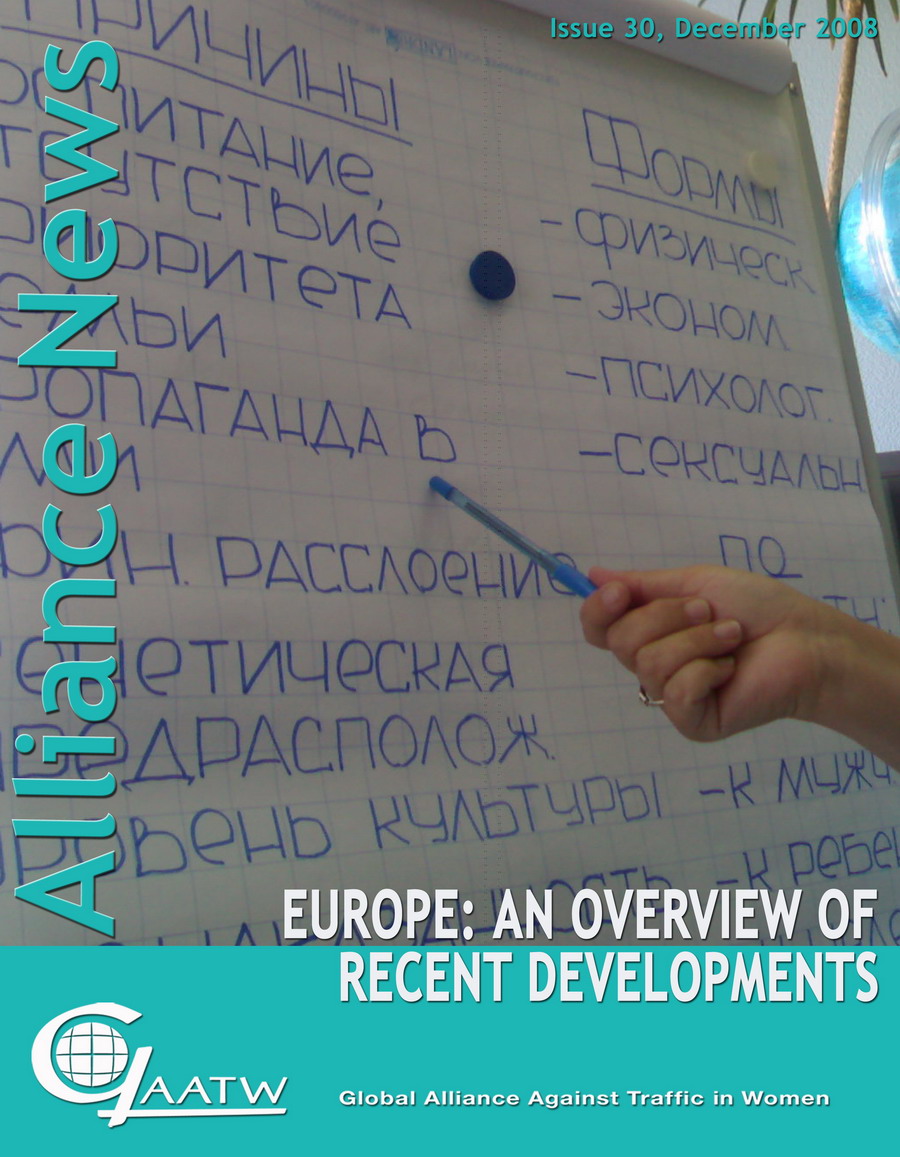 Issue 30, December 2008
Alliance News
ПРИЧИНЫ
ВОСПИТАНИЕ,
ОТСУТСТВИЕ
ПРИОРИТЕТА
СЕМЬИ
ПРОПАГАНДА В
СМИ
ФИН. РАССЛОЕНИЕ
ГЕНЕТИЧЕСКАЯ
ПРЕДРАСПОЛОЖ.
УРОВЕНЬ КУЛЬТУРЫ
Формы
– физическ
– эконом.
– психолог.
– сексуальн
по
– к мужч
– к ребен
EUROPE: AN OVERVIEW OF
RECENT DEVELOPMENTS
GAATW
Global Alliance Against Traffic in Women